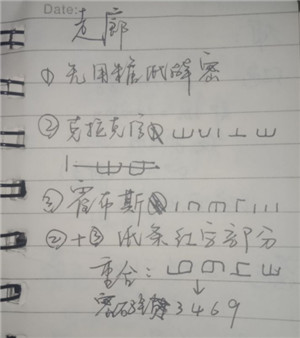 Date:
走廊
① 先用糖纸解密
② 克拉克信
③ 霍布斯
②+③ 纸条红字部分
重合:
密码 3469